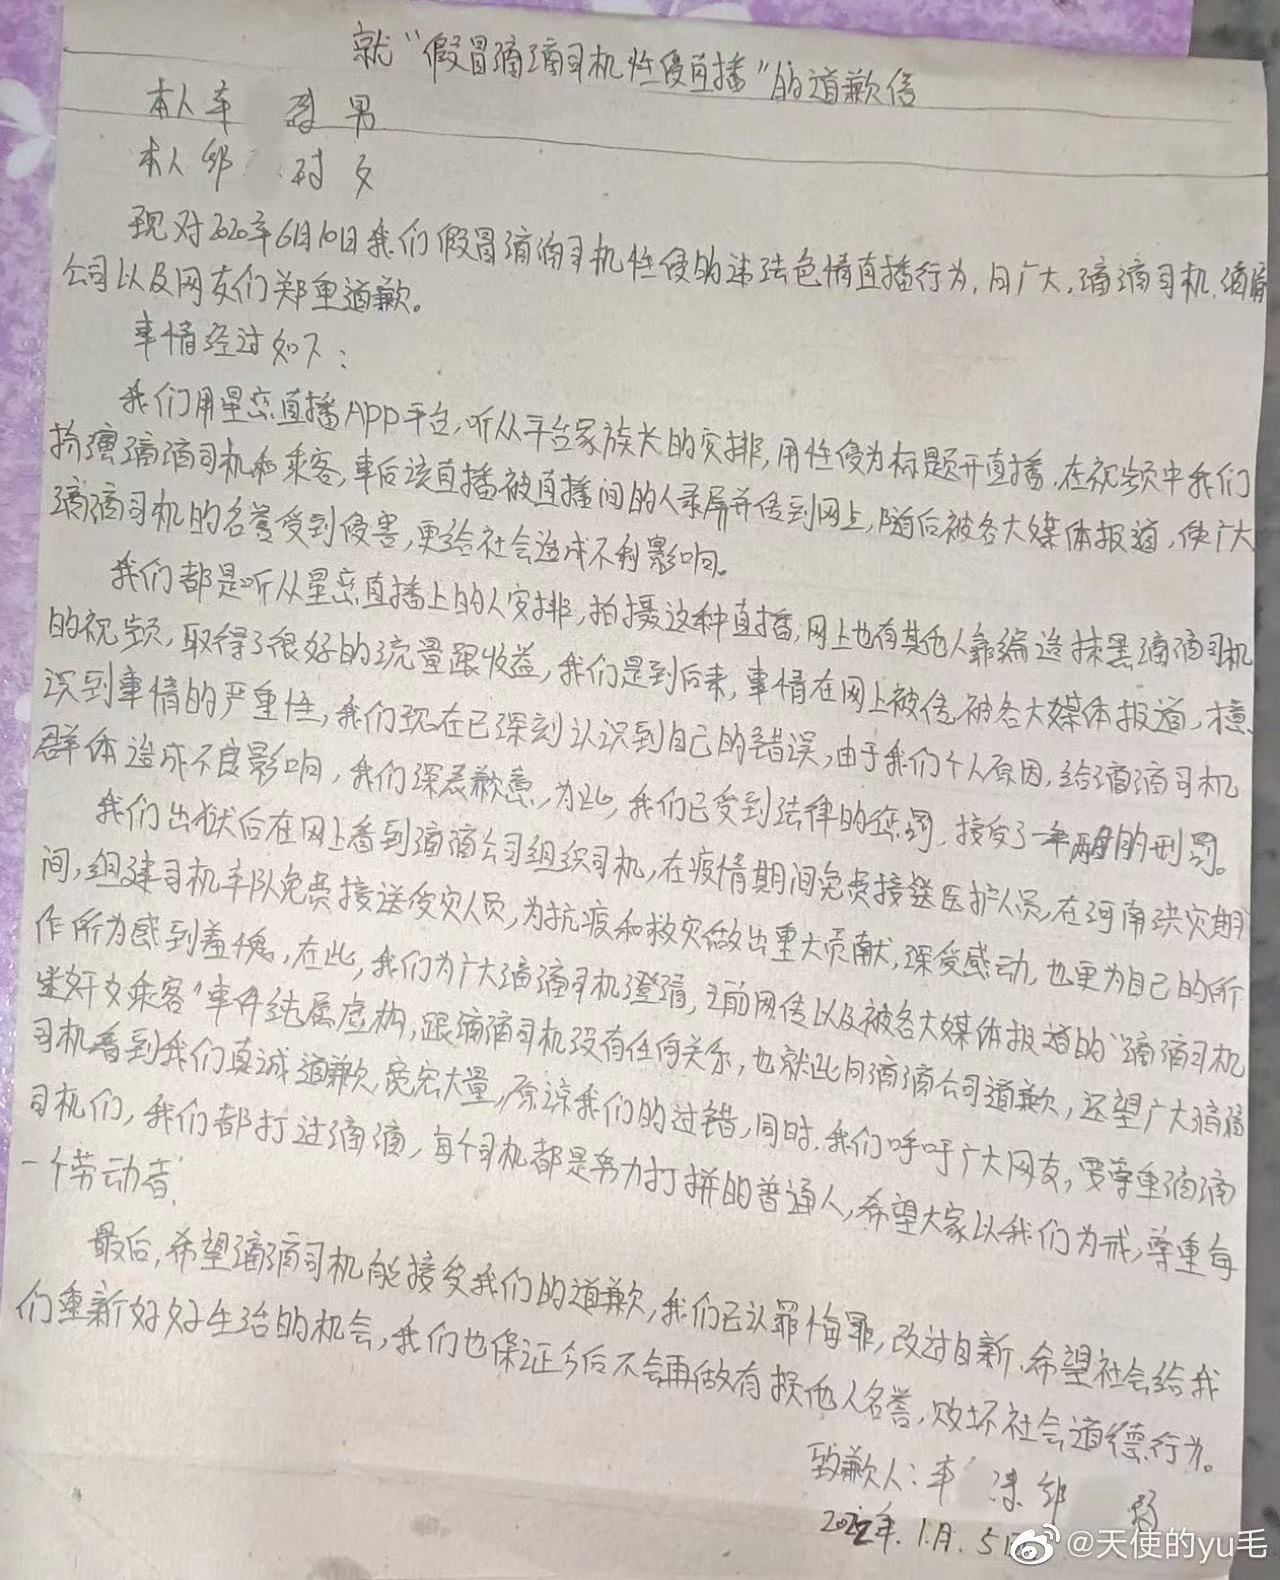 就“假冒滴滴司机性侵直播”的道歉信
本人车 男
本人邹 女
现对2020年6月10日我们假冒滴滴司机性侵的违法色情直播行为，向广大，滴滴司机，滴滴
公司以及网友们郑重道歉。
事情经过如下：
我们用星恋直播APP平台，听从平台家族长的安排，用性侵为标题开直播，在视频中我们
扮演滴滴司机和乘客，事后该直播被直播间的人录屏并传到网上，随后被各大媒体报道，使广大
滴滴司机的名誉受到侵害，更给社会造成不利影响。
我们都是听从星恋直播上的人安排，拍摄这种直播，网上也有其他人靠编造抹黑滴滴司机
的视频，取得了很好的流量跟收益，我们是到后来，事情在网上被传被各大媒体报道，才意
识到事情的严重性，我们现在已深刻认识到自己的错误，由于我们个人原因，给滴滴司机
群体造成不良影响，我们深表歉意，为此，我们已受到法律的惩罚，接受了一年两月的刑罚。
我们出狱后在网上看到滴滴公司组织司机，在疫情期间免费接送医护人员，在河南洪灾期
间，组建司机车队免费接送受灾人员，为抗疫和救灾做出重大贡献，深受感动，也更为自己的所
作所为感到羞愧，在此，我们为广大滴滴司机澄清，之前网传以及被各大媒体报道的“滴滴司机
迷奸女乘客”事件纯属虚构，跟滴滴司机没有任何关系，也就此向滴滴公司道歉，还望广大滴滴
司机看到我们真诚道歉，宽宏大量，原谅我们的过错，同时，我们呼吁广大网友，要尊重滴滴
司机们，我们都打过滴滴，每个司机都是努力打拼的普通人，希望大家以我们为戒，尊重每
一个劳动者。
最后，希望滴滴司机能接受我们的道歉，我们已认罪悔罪，改过自新，希望社会给我
们重新好好生活的机会，我们也保证今后不会再做有损他人名誉，败坏社会道德行为。
致歉人：车 邹
2022年.1月.5日
@天使的yu毛